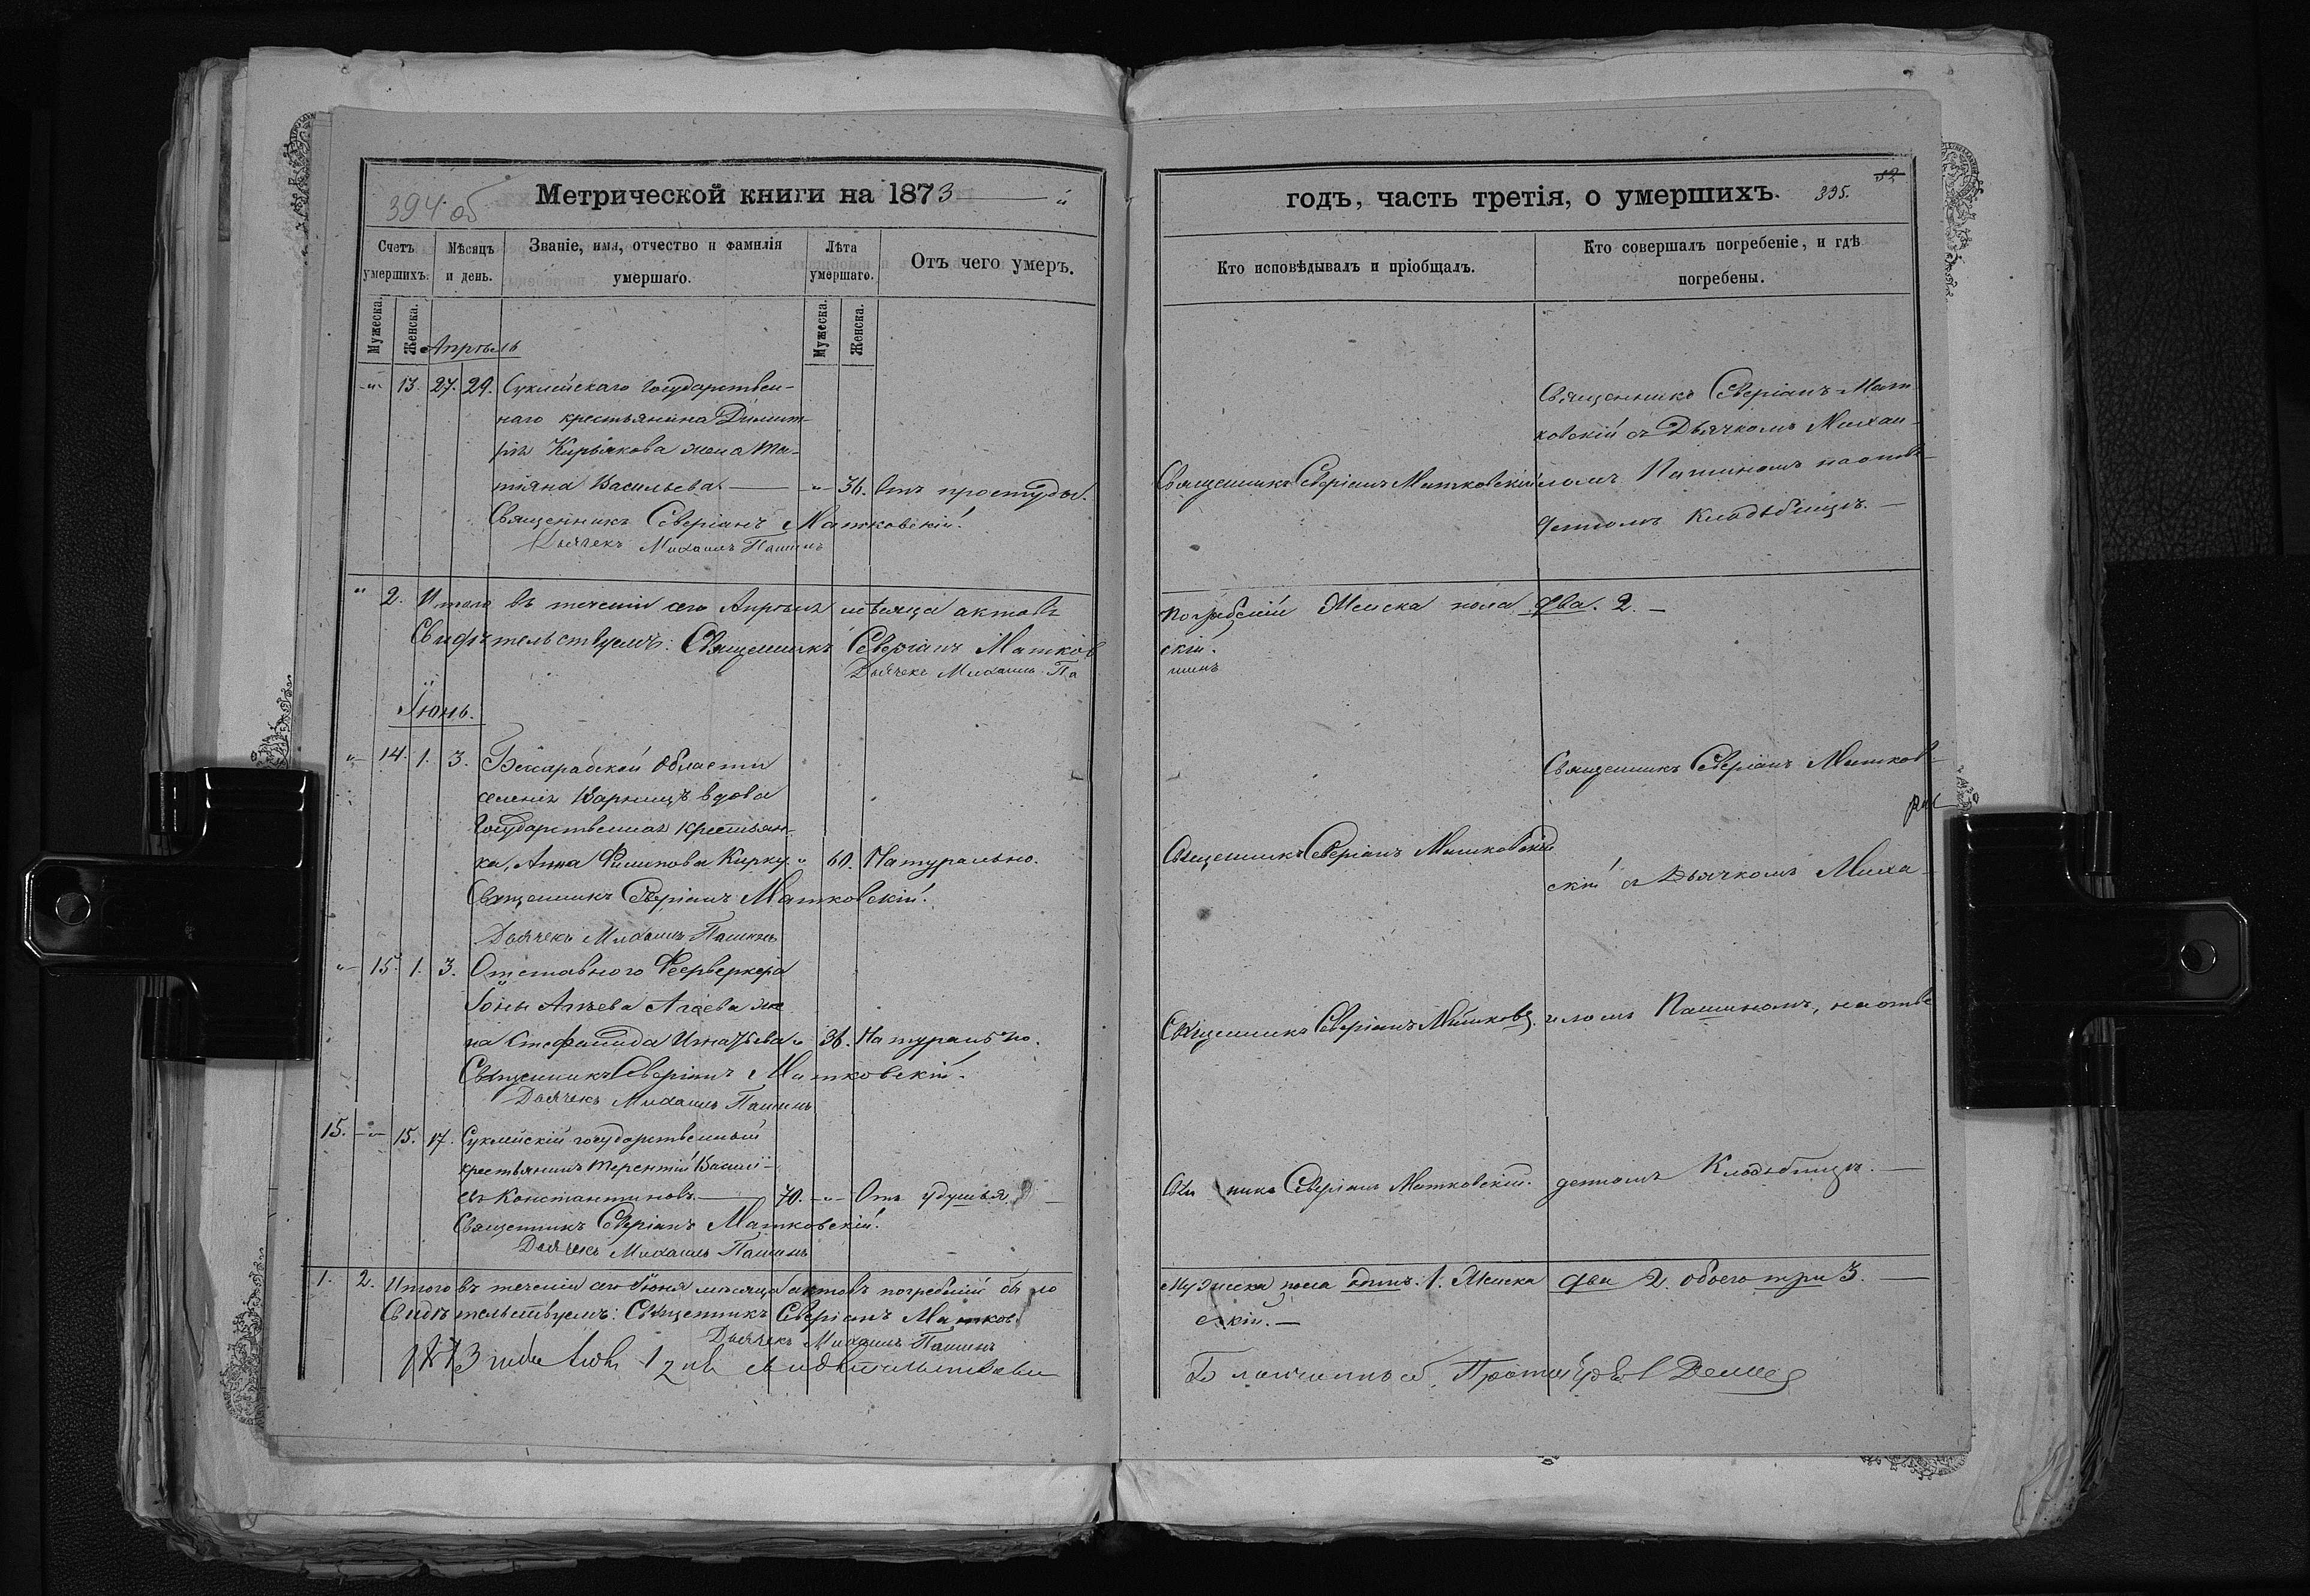 394 об
Метрической книги на 1873 й
Счетъ умершихъ.
Мѣсяцъ и день.
Званіе, имя, отчество и фамилія умершаго.
Лѣта умершаго.
Отъ чего умеръ.
Мужеска.
Женска.
Мужеска.
Женска.
Апрѣль
-"- 13. 27. 29. Суклейскаго государствен-
наго крестьянина Димит-
рія Кирьякова жена Та-
тіяна Васильева -"- 36. Отъ простуды.
Священникъ Северіанъ Матковскій.
Дьячекъ Михаилъ Пашинъ
" 2. Итого въ теченіи сего Апрѣля мѣсяца актовъ
Свидѣтельствуемъ: Священникъ Северіанъ Матков
Дьячекъ Михаилъ Па
Іюнь.
"- 14. 1. 3. Бессарабской Области
селенія Варницъ вдова
Государственная крестьян-
ка, Анна Филипова Кирку " 60. Натурально.
Священникъ Северіанъ Матковскій.
Дьячекъ Михаилъ Пашинъ
"- 15. 1. 3. Отставного Феерверкера
Іоны Агѣева Агѣева же
на Стефанида Игнатьева " 36. Натурально.
Священникъ Северіанъ Матковскій.
Дьячекъ Михаилъ Пашинъ
15. -"- 15. 17. Суклейскій государственный
крестьянинъ Терентій Васильи-
въ Константиновъ 70. -"- Отъ удушья
Священникъ Северіанъ Матковскій.
Дьячекъ Михаилъ Пашинъ
1. 2. Итого въ теченіи сего Іюня мѣсяца актовъ погребеній было
Свидѣтельствуемъ: Священникъ Северіанъ Матков
Дьячекъ Михаилъ Пашинъ
1873 года
годъ, часть третія, о умершихъ. 395.
Кто исповѣдывалъ и пріобщалъ.
Кто совершалъ погребеніе, и гдѣ погребены.
Священникъ Северіанъ Мат
ковскій съ Дьячкомъ Михаи-
Священникъ Северіанъ Матковскій ломъ Пашиномъ на отве-
денномъ Кладбищѣ.
погребеній Женска пола два. 2. –
скій.
шинъ
Священникъ Северіанъ Матков-
Священникъ Северіанъ Матковскій
скій съ Дьячкомъ Миха-
Священникъ Северіанъ Матковс. иломъ Пашиномъ, на отве
никъ Северіанъ Матковскій. денномъ Кладбищѣ.
Мужеска пола одинъ. 1. Женска два 2. обоего три 3.
скій. –